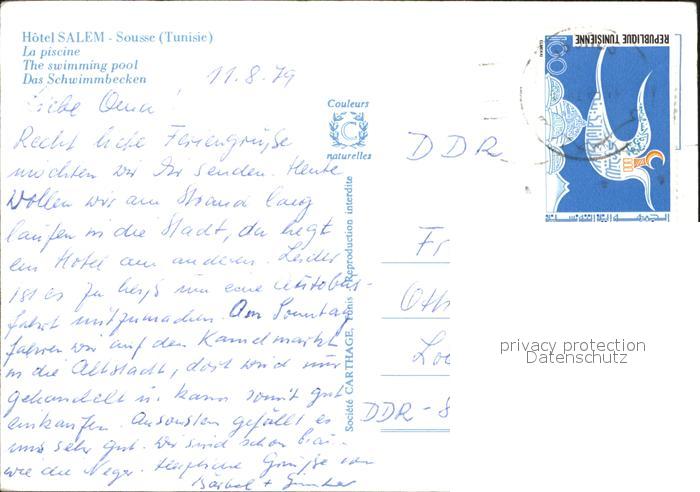 Hôtel SALEM - Sousse (Tunisie)
La piscine
The swimming pool
Das Schwimmbecken
11.8.79
Liebe Oma!
Recht liebe Feriengrüße
möchten wir Dir senden. Heute
wollen wir am Strand lang
laufen in die Stadt, da liegt
ein Hotel am anderen. Leider
ist es zu heiß um eine Autobus-
fahrt mitzumachen. Am Sonntag
fahren wir auf den Kamelmarkt
in die Altstadt, dort wird nur
gehandelt u. kann somit gut
einkaufen. Ansonsten gefällt es
uns sehr gut. Wir sind schon
wie die Neger. Herzliche Grüße von
Bärbel + Günther
Couleurs
C
naturelles
Société CARTHAGE, Tunis Reproduction interdite
REPUBLIQUE TUNISIENNE
100
DDR
Fr
Oth
DDR-8
privacy protection
Datenschutz